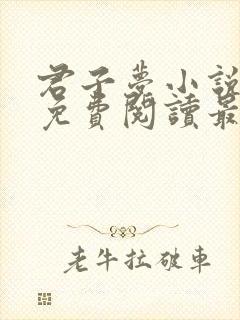 君子夢小說
免費閱讀最
老牛拉破車